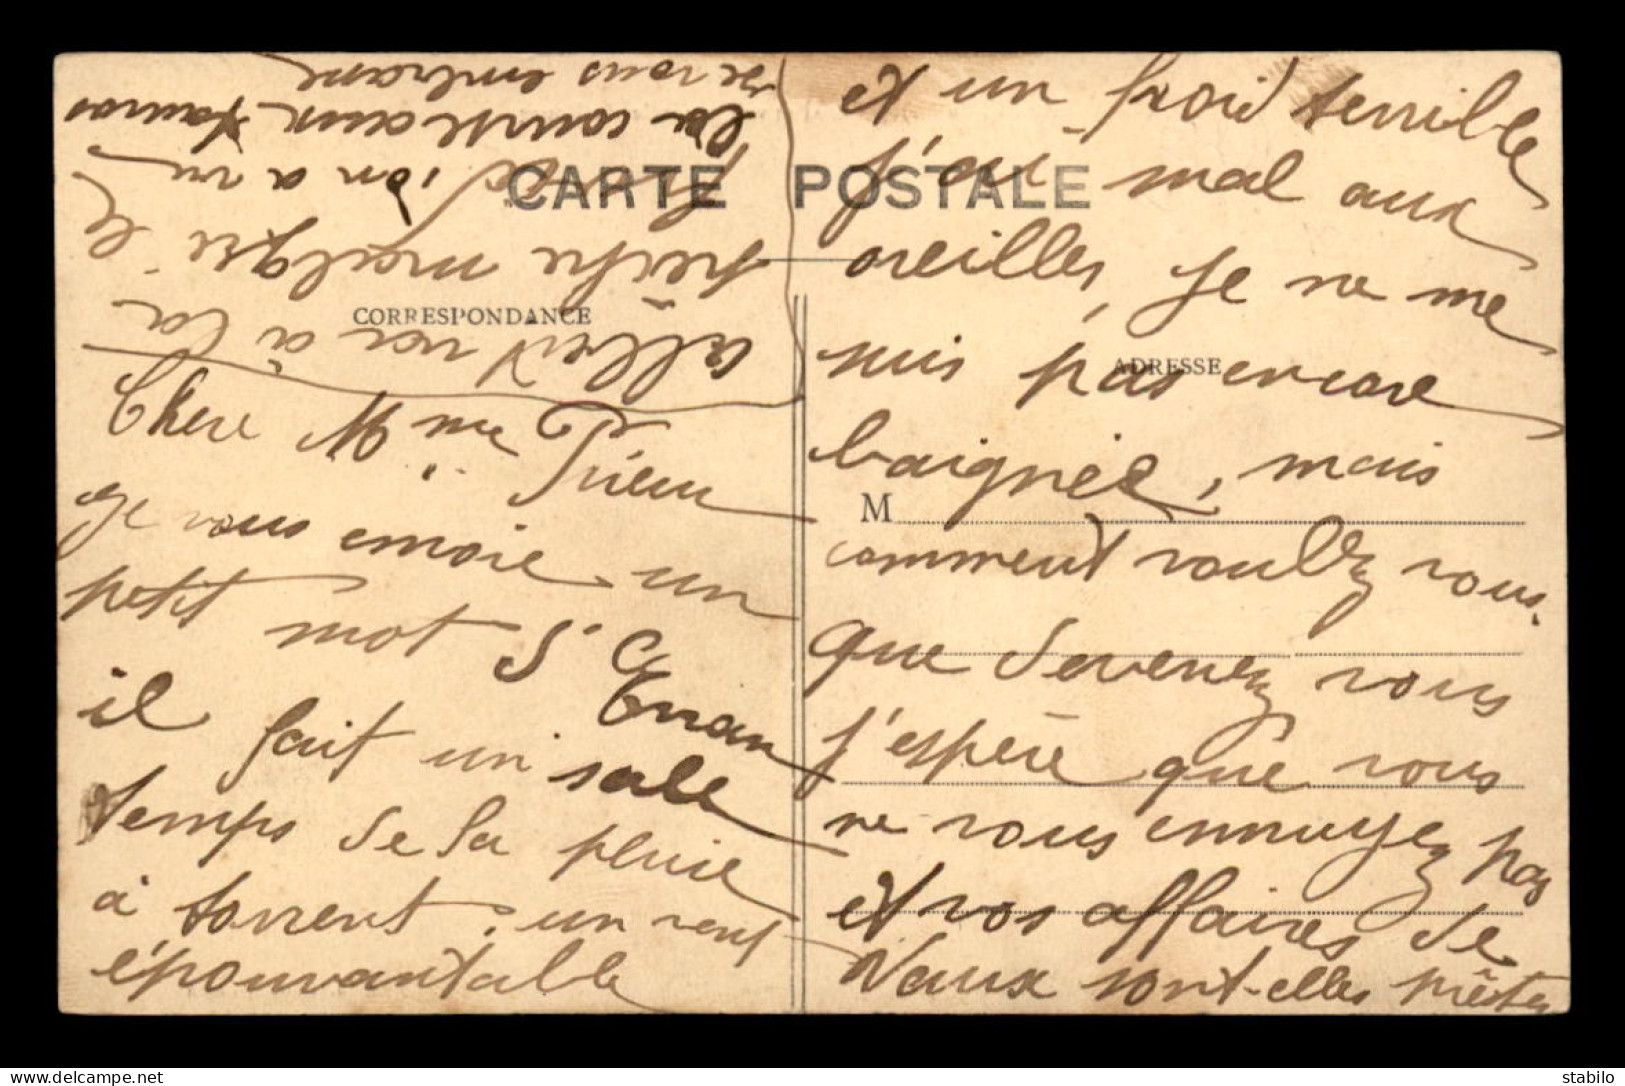 CARTE POSTALE
CORRESPONDANCE
ADRESSE
M
Chere Mme Prieur
Je vous envoie un
petit mot d'
il fait un sale
temps de la pluie
à torrent, un vent
épouvantable
et un froid terrible
j'ai mal aux
oreilles, je ne me
suis pas encore
baignée, mais
comment voulez vous.
que devenez vous
j'espère que vous
ne vous ennuyez pas
et vos affaires de
Vaux sont-elles prêtes
Albert va à la
pêche malgré le
froid, on a vu
la course aux taureaux
Je vous embrasse
stabilo